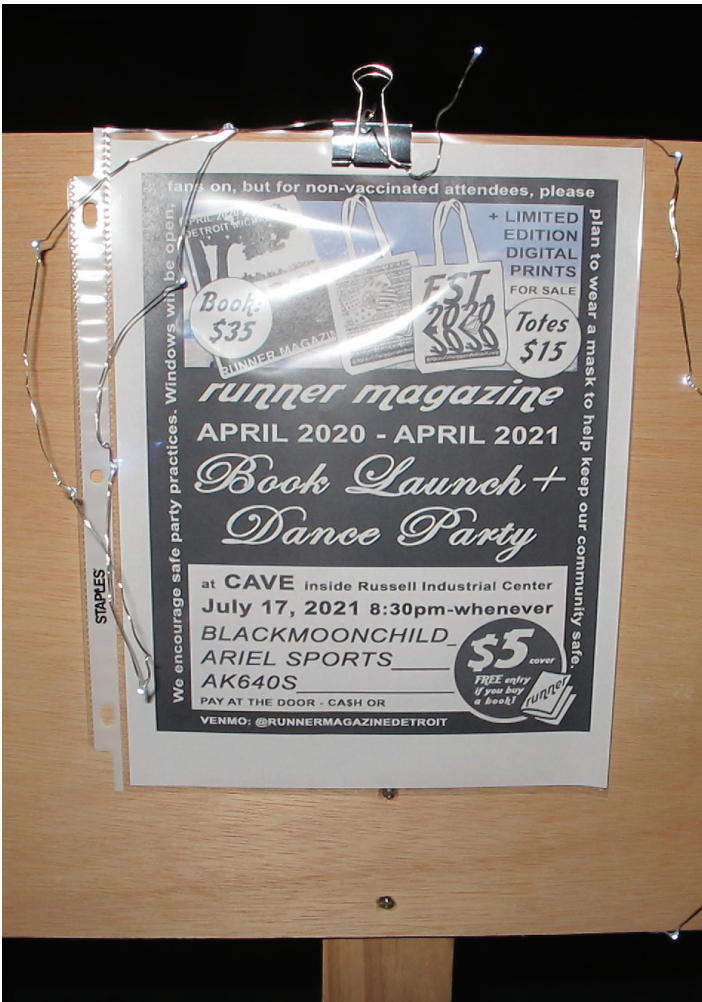 We encourage safe party practices. Windows will be open,
fans on, but for non-vaccinated attendees, please
plan to wear a mask to help keep our community safe.
APRIL 2020
DETROIT MICHIGAN
RUNNER MAGAZIN
Book:
$35
EST
2020
+ LIMITED
EDITION
DIGITAL
PRINTS
FOR SALE
Totes
$15
runner magazine
APRIL 2020 - APRIL 2021
Book Launch +
Dance Party
at CAVE inside Russell Industrial Center
July 17, 2021 8:30pm-whenever
BLACKMOONCHILD_
ARIEL SPORTS____
AK640S___________
$5 cover
FREE entry
if you buy
a book!
runner
PAY AT THE DOOR - CA$H OR
VENMO: @RUNNERMAGAZINEDETROIT
STAPLES